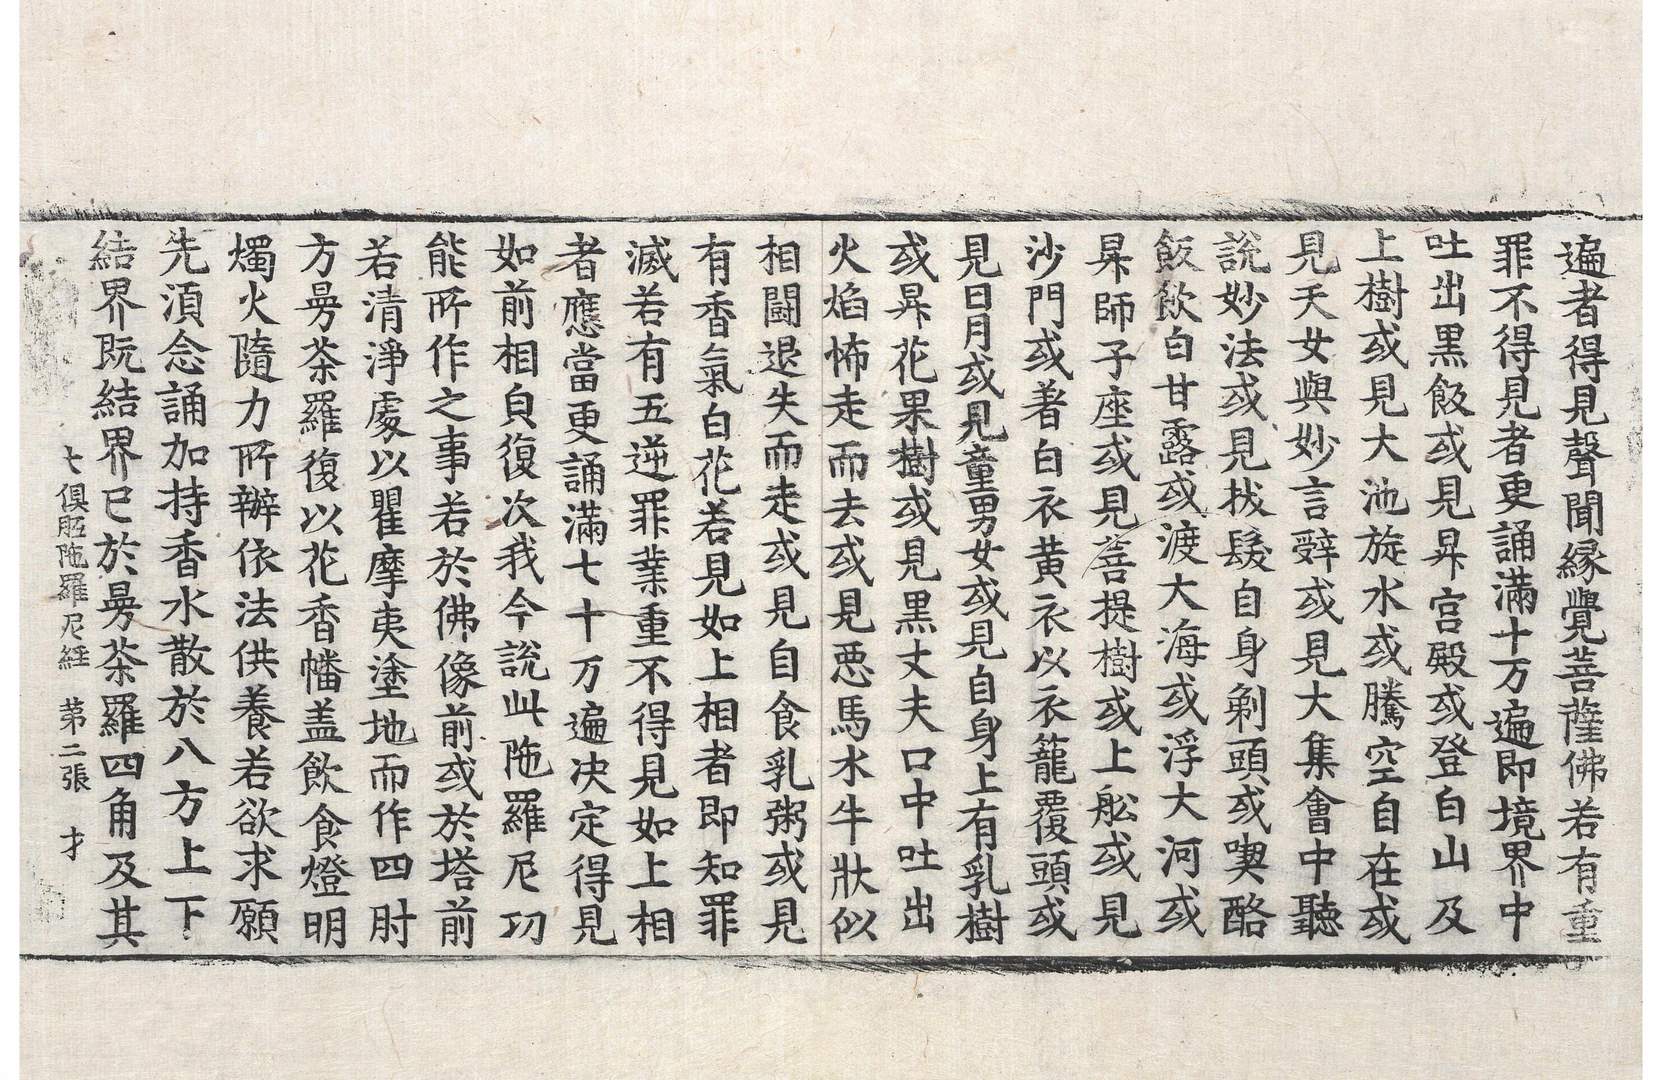 遍者得見聲聞緣覺菩薩佛若有重
罪不得見者更誦滿十万遍即境界中
吐出黑飯或見昇宮殿或登白山及
上樹或見大池旋水或騰空自在或
見天女與妙言辭或見大集會中聽
說妙法或見拔髮自身剃頭或喫酪
飯飲白甘露或渡大海或浮大河或
昇師子座或見菩提樹或上舩或見
沙門或著白衣黃衣以衣籠覆頭或
見日月或見童男女或見自身上有乳樹
或昇花果樹或見黑丈夫口中吐出
火焰怖走而去或見惡馬水牛狀似
相鬪退失而走或見自食乳粥或見
有香氣白花若見如上相者即知罪
滅若有五逆罪業重不得見如上相
者應當更誦滿七十万遍決定得見
如前相貟復次我今說此陁羅尼功
能所作之事若於佛像前或於塔前
若清淨處以瞿摩夷塗地而作四肘
方曼茶羅復以花香幡盖飲食燈明
燭火隨力所辦依法供養若欲求願
先湏念誦加持香水散於八方上下
結界既結界已於曼茶羅四角及其
七俱胝陁羅尼經　第二張　才